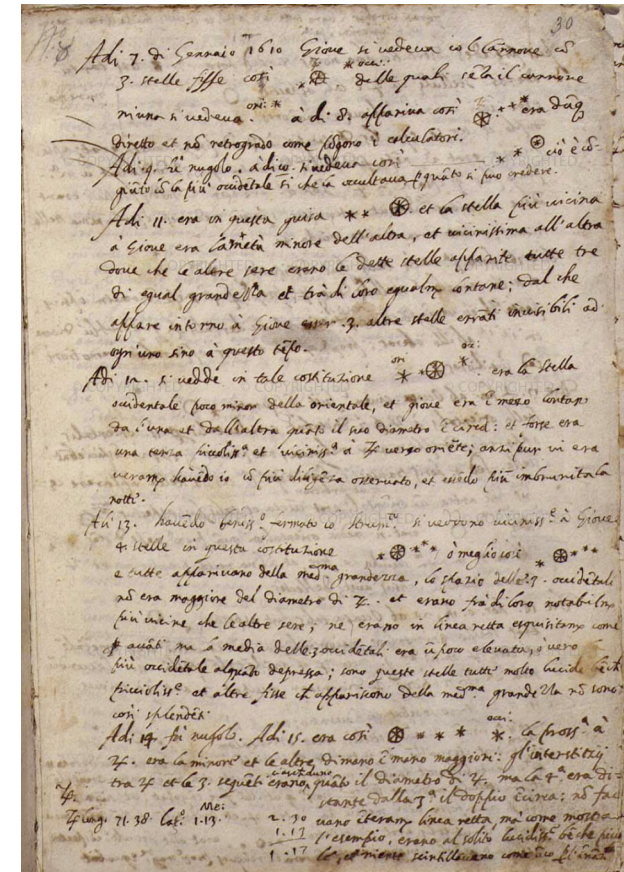 30
Adi 7. di Gennaio 1610 Giove si vedeva col Cannone cō
3. stelle fisse così occ: delle quali senza il cannone
niuna si vedeva. ori: à dì 8. appariva così era dūq
diretto et nō retrogrado come pōgono i calculatori.
Adi 9. fù nugolo. à dì 10. si vedeva così cioè cō-
giūto cō la più occidētale si che la occultava p quāto si può credere.
Adi 11. era in questa guisa et la stella più vicina
à Giove era la metà minore dell'altra, et vicinissima all'altra
dove che le altre sere erano le dette stelle apparite tutte tre
di egual grandezza et trà di loro egualm. lontane; dal che
appare intorno à Giove esser .3. altre stelle errāti invisibili ad
ogn'uno sino à questo tēpo.
Adi 12. si vedde in tale costituzione ori occ: era la stella
occidentale poco minor della orientale, et giove era ī mezo lontan
da l'una et dall'altra quāto il suo diametro ī circa: et forse era
una terza piccoliss.ª et viciniss.ª à ♃ verso oriēte; anzi pur vi era
veram. havēdo io cō più diligēza osservato, et essēdo più imbrunita la
notte.
Adi 13. havēdo beniss.º fermato lo strum.to si veddono viciniss.e à Giove
4 stelle in questa costituzione ò meglio così
e tutte apparivano della med.ma grandezza, lo spazio delle 3. occidētali
nō era maggiore del diametro di ♃. et erano frà di loro notabilm.
più vicine che le altre sere; ne erano in linea retta esquisitam. come
p avāti ma la media delle 3 occidētali era ū poco elevata, o vero la
più occidētale alquāto depressa; sono queste stelle tutte molto lucide bēch
piccioliss.e et altre fisse ch appariscono della med.ma grandezza nō sono
così splendēti.
Adi 14 fù nugolo. Adi 15. era così occi: la pross.ª à
♃. era la minore et le altre di mano ī mano maggiori: gl'interstitij
tra ♃ et le 3. seguēti erano, ciascheduno quāto il diametro di ♃. ma la 4.ª era di-
stante dalla 3.ª il doppio ī circa; nō fac
♃ long. 71.38. Lat.º Me: 1.13. 2.30 vano īteram. linea retta, ma come mostra
1.13 l'esempio, erano al solito lucidiss.e bēche picco
1.17 le, et niente scintillavano come āco p l'inān